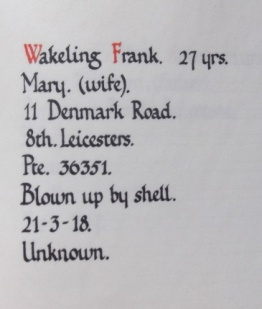 Wakeling Frank. 27 yrs.
Mary. (wife).
11 Denmark Road.
8th. Leicesters.
Pte. 36351.
Blown up by shell.
21-3-18.
Unknown.